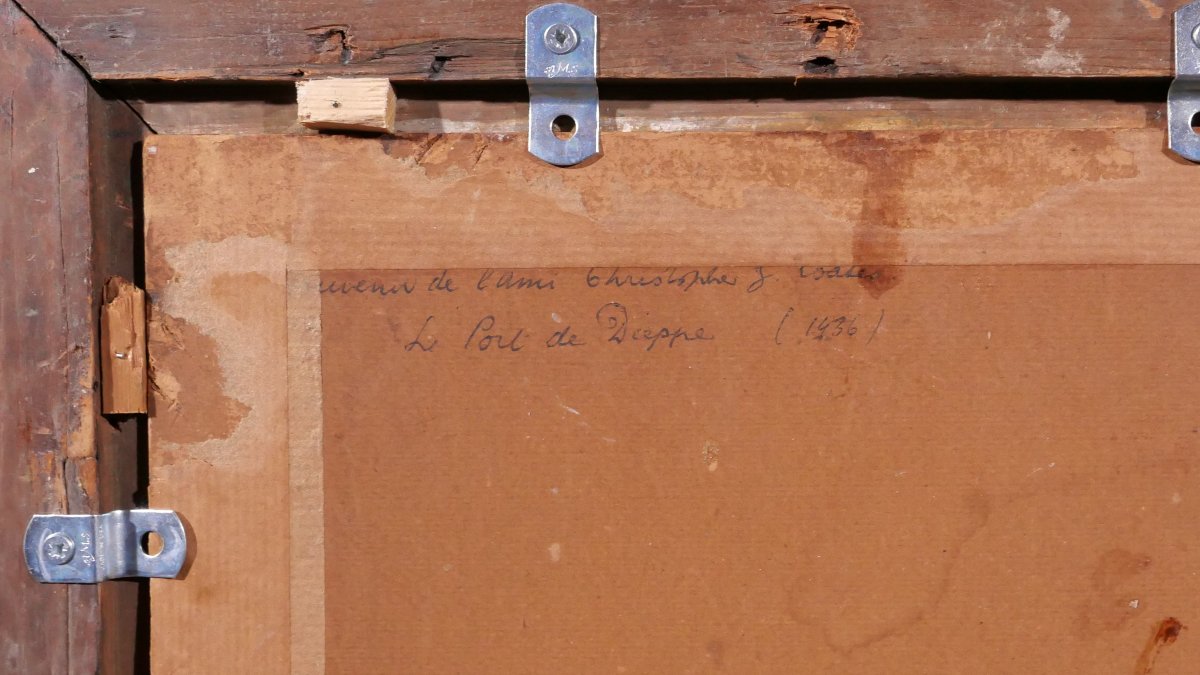 de l'ami Christopher J.
Le Port de Dieppe (1936)